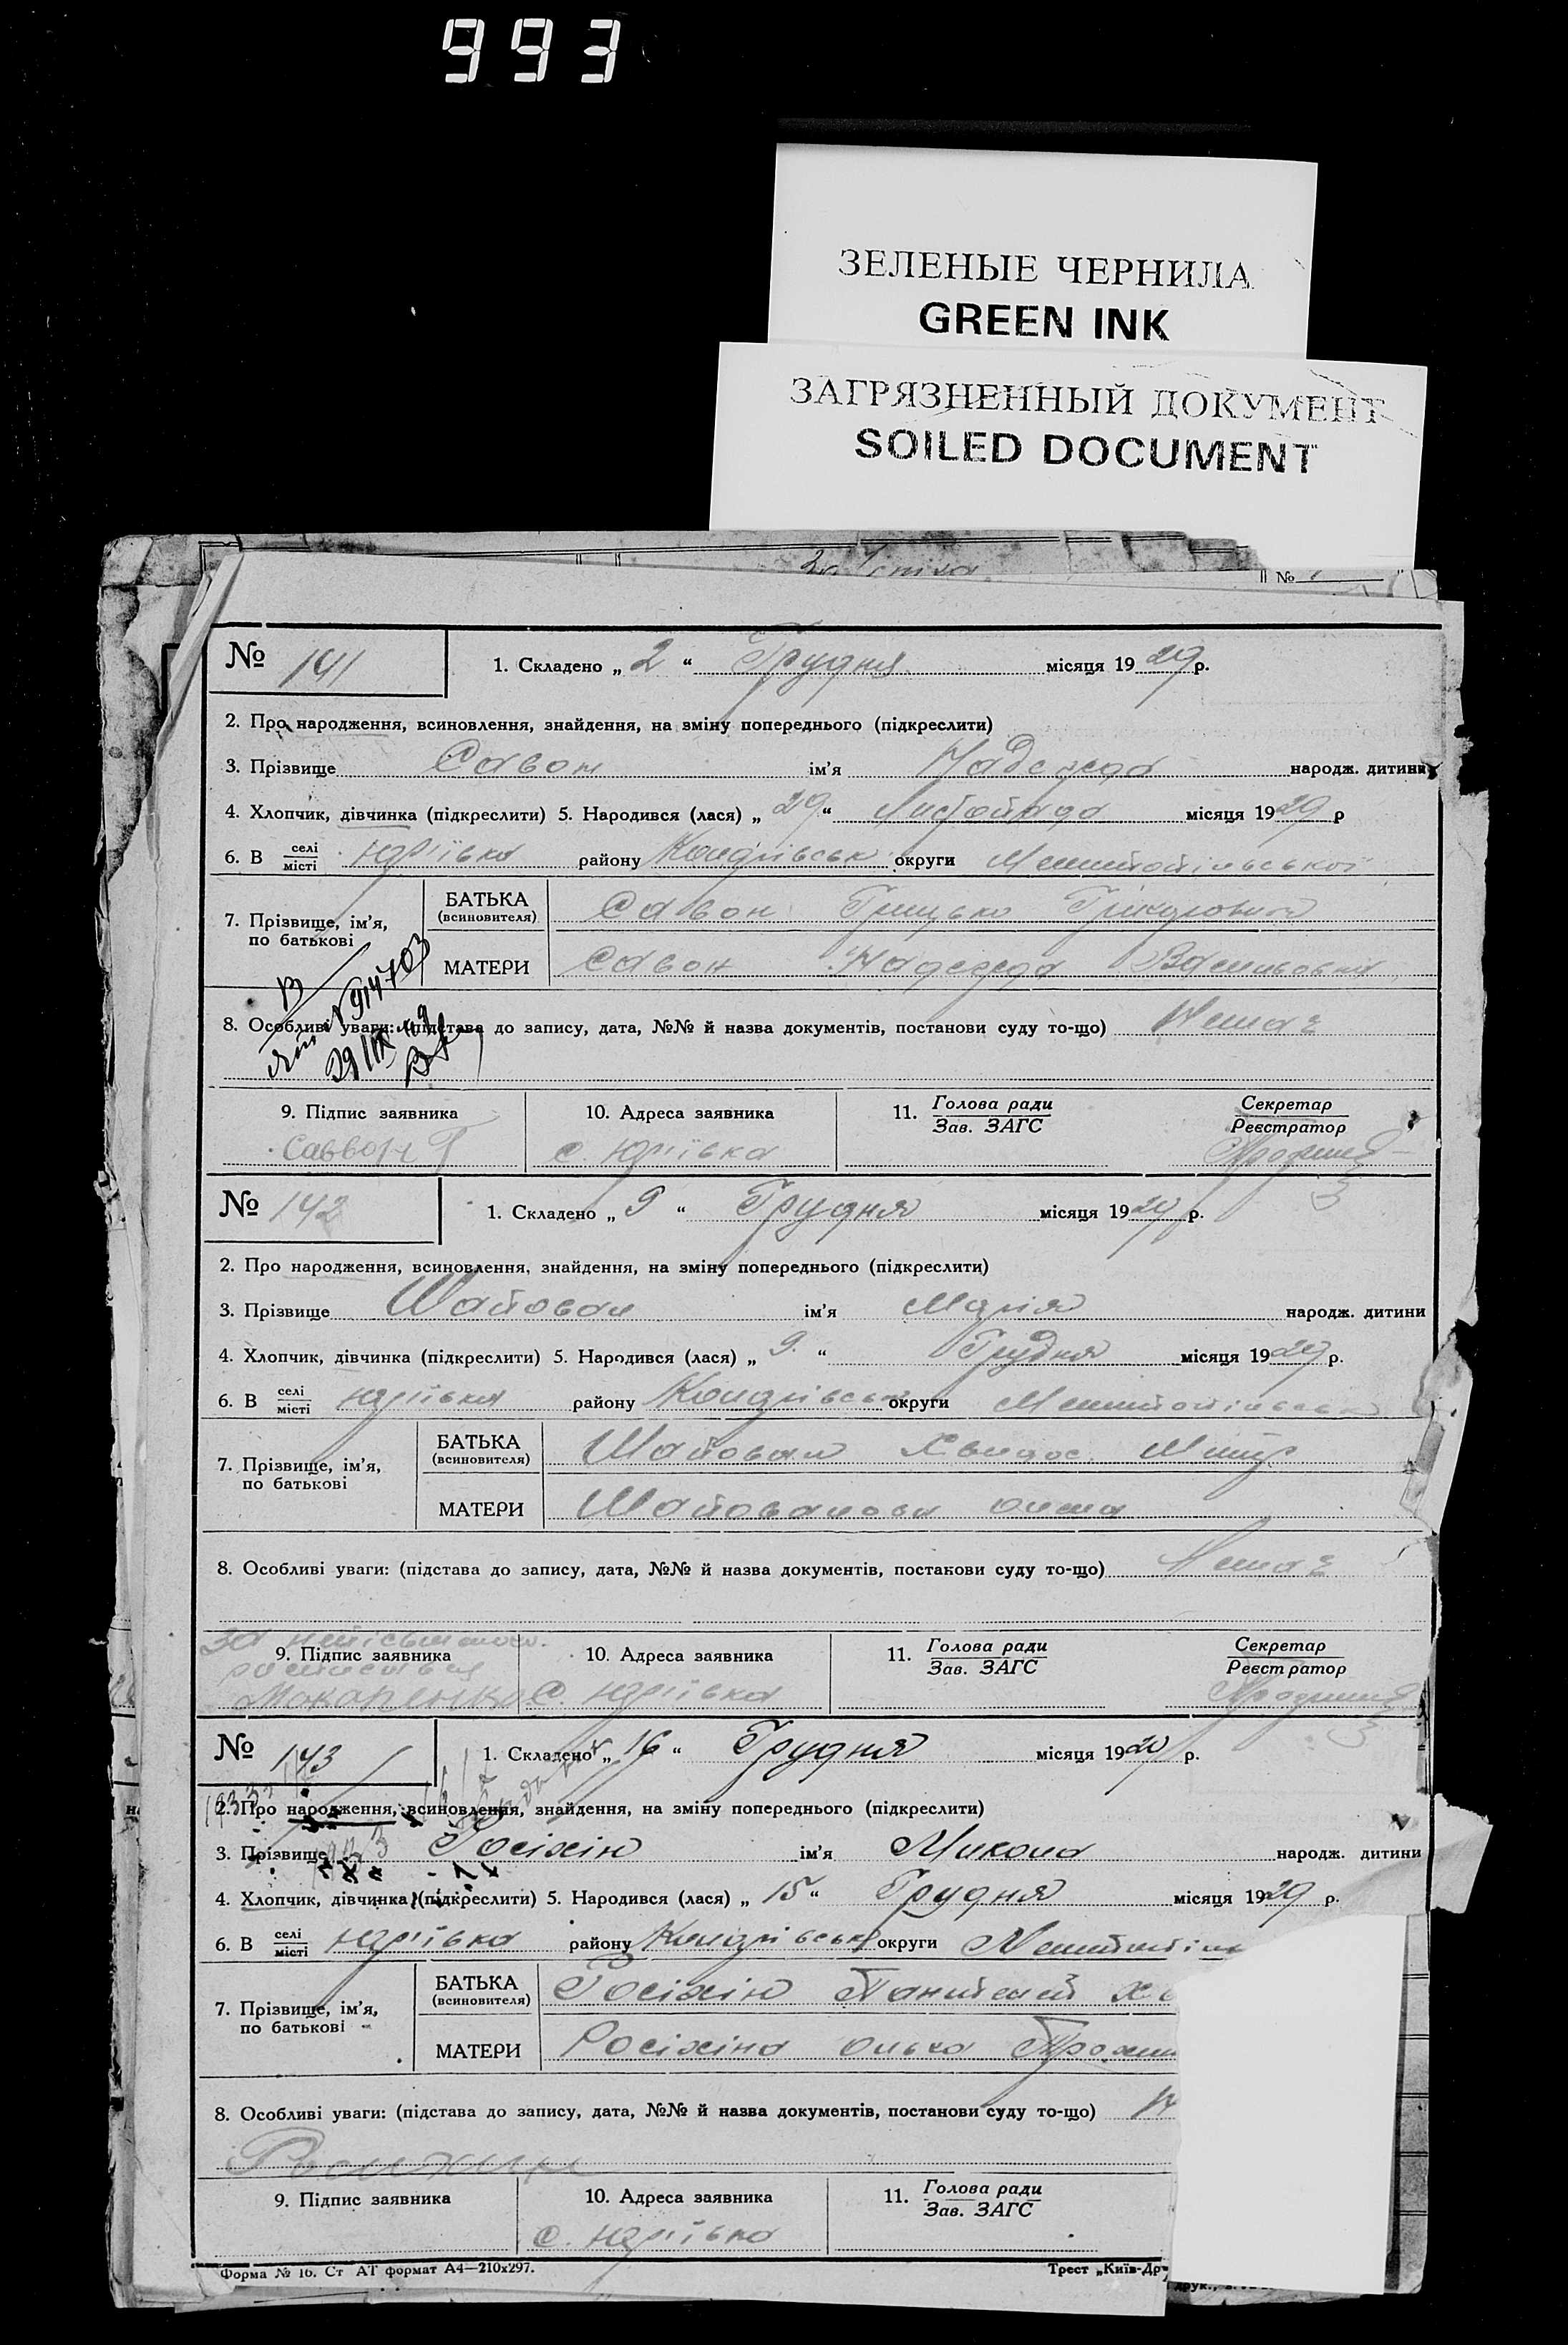 993
ЗЕЛЕНЫЕ ЧЕРНИЛА
GREEN INK
ЗАГРЯЗНЕННЫЙ ДОКУМЕНТ
SOILED DOCUMENT
№
№ 141
1. Складено „ 2 “ Грудня місяця 1929р.
2. Про народження, всиновлення, знайдення, на зміну попереднього (підкреслити)
3. Прізвище Савон ім'я Надежда народж. дитини
4. Хлопчик, дівчинка (підкреслити) 5. Народився (лася) „ 29 “ Листопада місяця 1929 р
6. В селі місті Юр'ївка району округи Мелітопільської
7. Прізвище, ім'я, по батькові
БАТЬКА (всиновителя) Савон Грицько
МАТЕРИ Савон Надежда Васильовна
8. Особливі уваги: (підстава до запису, дата, №№ й назва документів, постанови суду то-що) Немає
9. Підпис заявника
10. Адреса заявника
11. Голова ради Зав. ЗАГС
Секретар Реєстратор
Саввон Г
с. Юр'ївка
№ 142
1. Складено „ 9 “ Грудня місяця 1929 р.
2. Про народження, всиновлення, знайдення, на зміну попереднього (підкреслити)
3. Прізвище Шаповал ім'я Марія народж. дитини
4. Хлопчик, дівчинка (підкреслити) 5. Народився (лася) „ 9 “ Грудня місяця 1929 р.
6. В селі місті Юр'ївка району округи
7. Прізвище, ім'я, по батькові
БАТЬКА (всиновителя) Шаповал
МАТЕРИ Шаповалова
8. Особливі уваги: (підстава до запису, дата, №№ й назва документів, постанови суду то-що) Немає
9. Підпис заявника
10. Адреса заявника
11. Голова ради Зав. ЗАГС
Секретар Реєстратор
Макаренко
с. Юр'ївка
№ 143
1. Складено „ 16 “ Грудня місяця 1929 р.
2. Про народження, всиновлення, знайдення, на зміну попереднього (підкреслити)
3. Прізвище Росіхін ім'я Микола народж. дитини
4. Хлопчик, дівчинка (підкреслити) 5. Народився (лася) „ 15 “ Грудня місяця 1929 р.
6. В селі місті Юр'ївка району округи
7. Прізвище, ім'я, по батькові
БАТЬКА (всиновителя) Росіхін
МАТЕРИ Росіхіна Олька
8. Особливі уваги: (підстава до запису, дата, №№ й назва документів, постанови суду то-що)
9. Підпис заявника
10. Адреса заявника
11. Голова ради Зав. ЗАГС
с. Юр'ївка
Форма № 16. Ст АТ формат А4—210х297.
Трест „Київ-Др